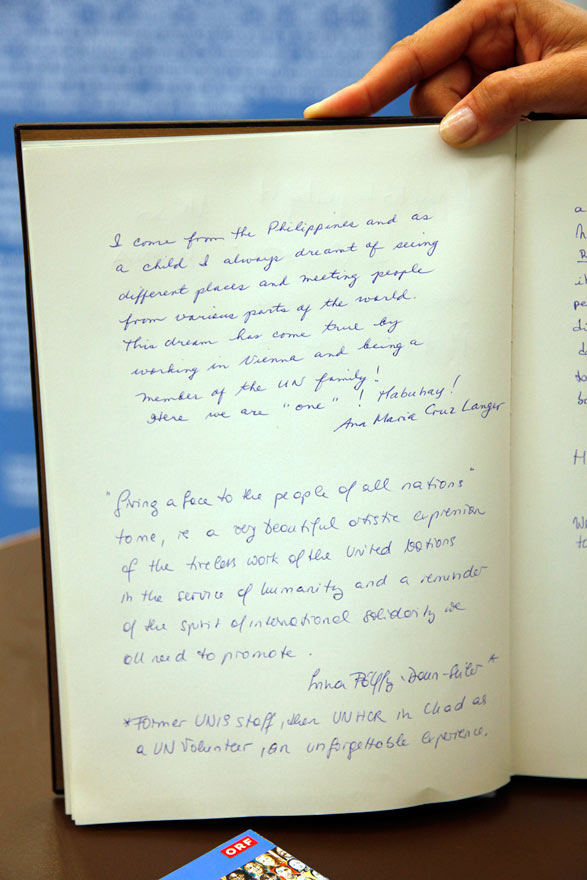 I come from the Philippines and as
a child I always dreamt of seeing
different places and meeting people
from various parts of the world.
This dream has come true by
working in Vienna and being a
member of the UN family!
Here we are "one"! Mabuhay!
Ana Maria Cruz Langer
"Giving a face to the people of all nations"
to me, is a very beautiful artistic expression
of the tireless work of the United Nations
in the service of humanity and a reminder
of the spirit of international solidarity we
all need to promote.
*
*Former UNIS staff, then UNHCR in Chad as
a UN Volunteer, an unforgettable experience.
ORF